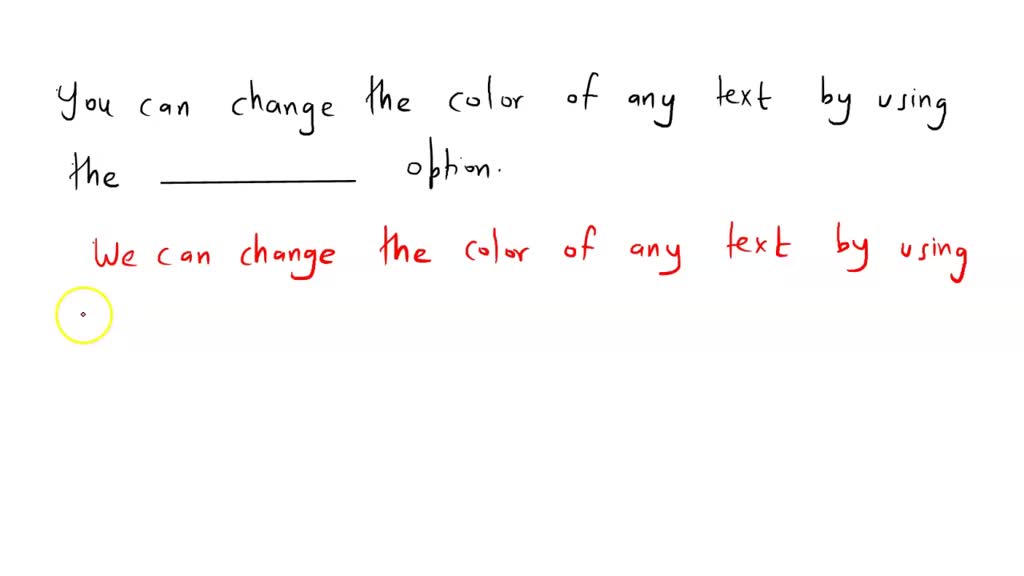 You can change the color of any text by using
the __________ option.
We can change the color of any text by using